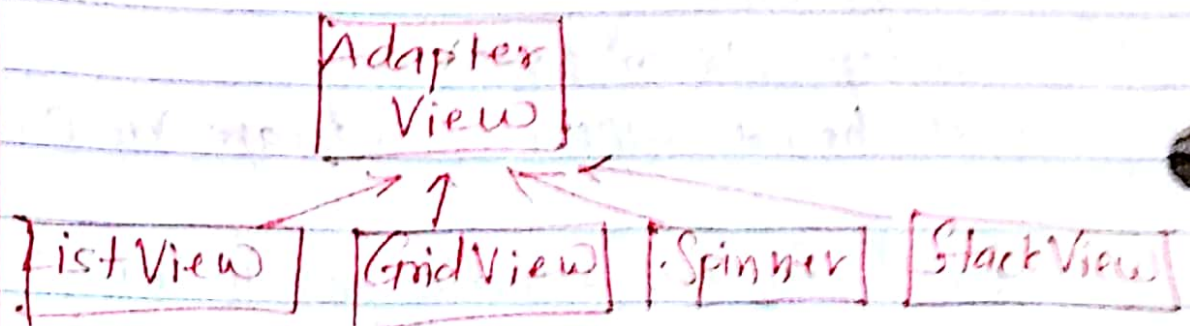 Adapter
View
ListView GridView Spinner StackView